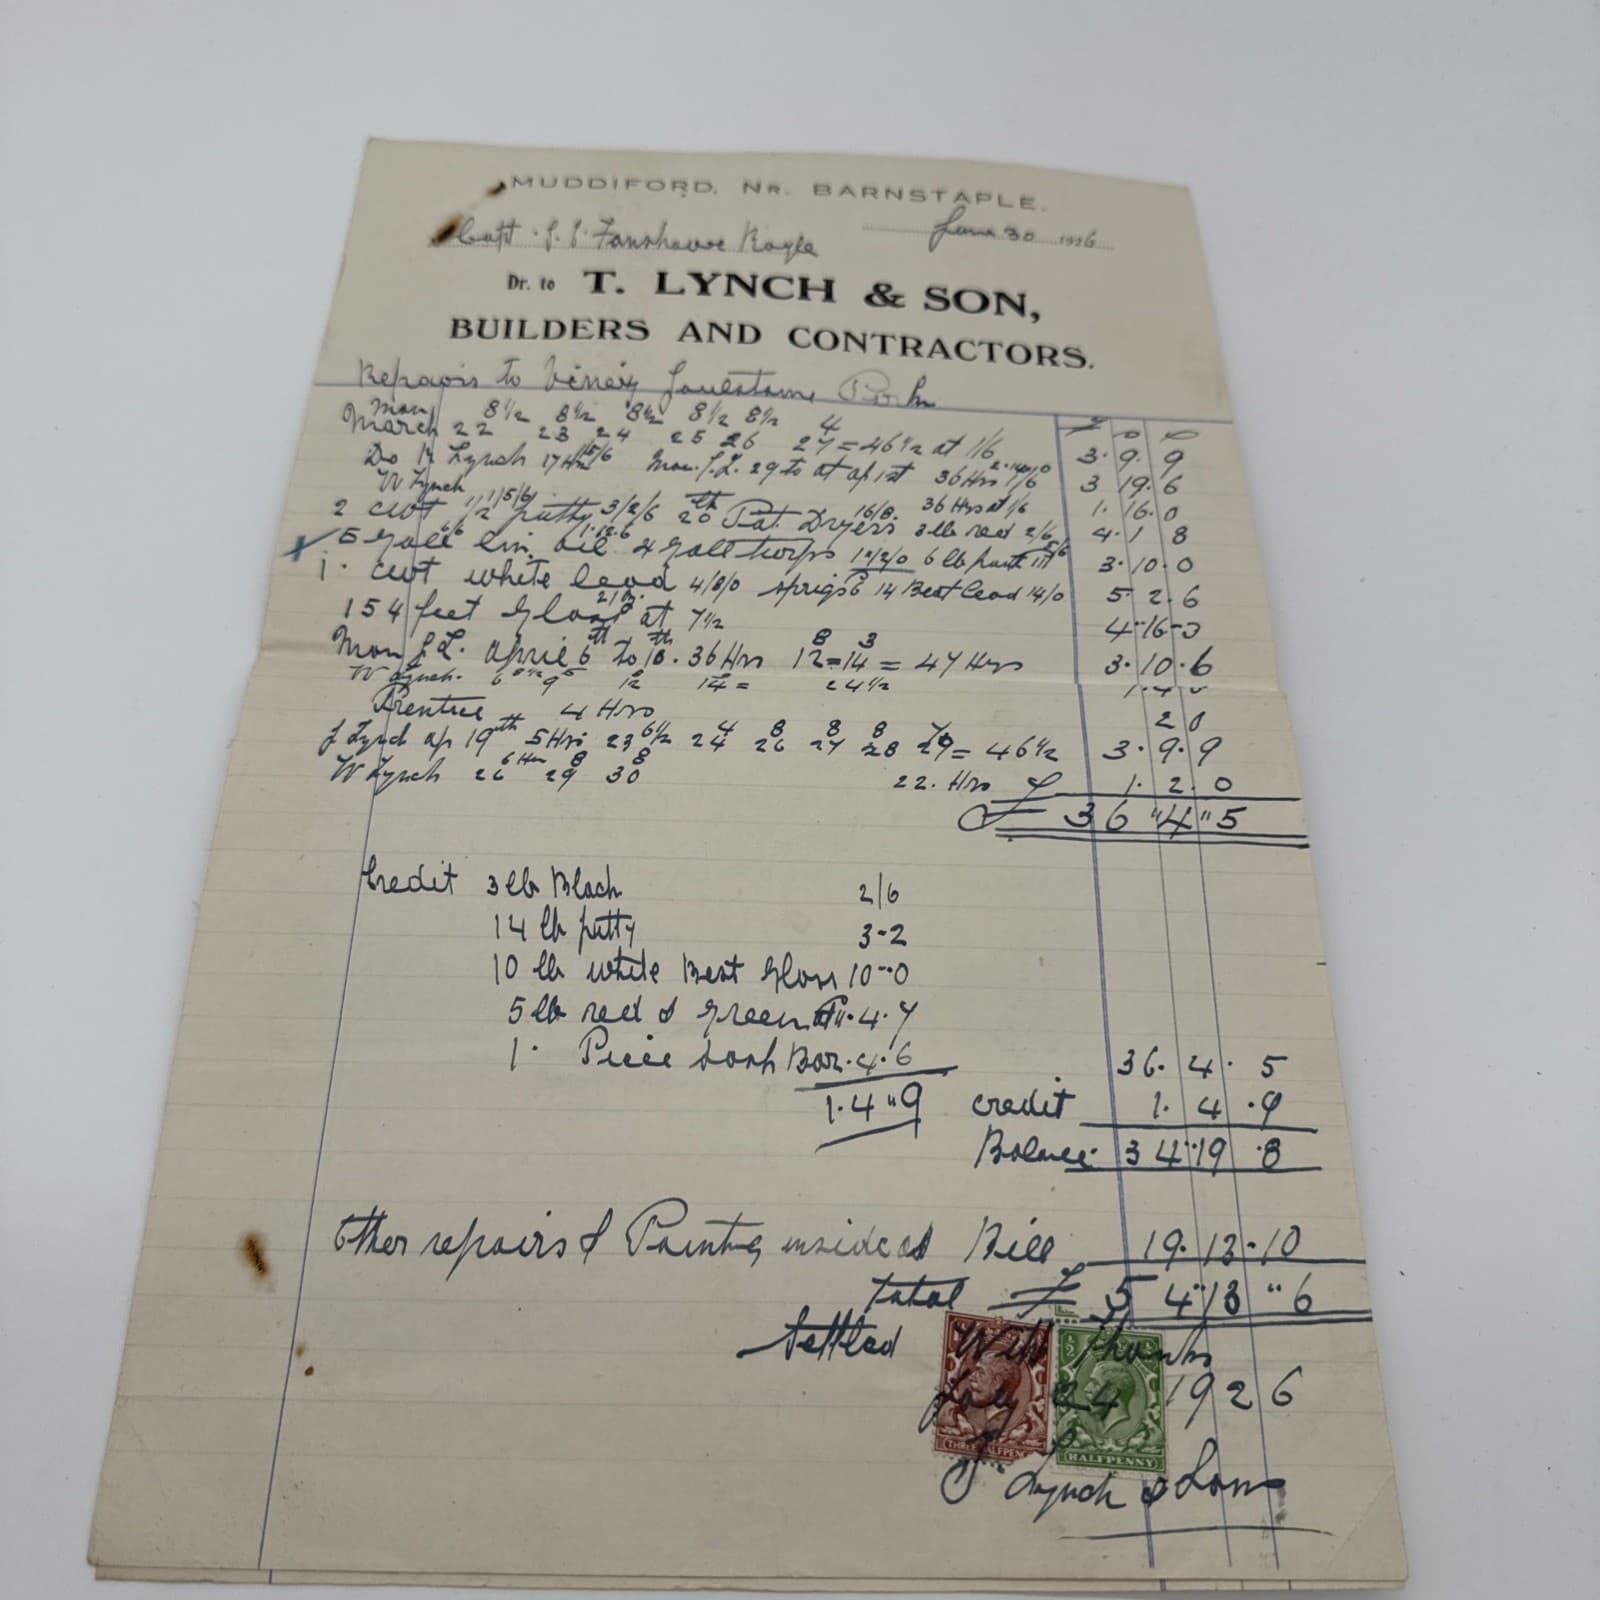 MUDDIFORD, NR. BARNSTAPLE.
Capt. Fanshawe Royle June 30 1926
Dr. to T. LYNCH & SON,
BUILDERS AND CONTRACTORS.
Repairs to Vinery
Mon 8½ 8½ 8½ 8½ 8½ 4
March 22 23 24 25 26 27 = 46½ at 1/6 3. 9. 9
Do Lynch 17 Hrs 36 Hrs 1/6 3 19. 6
W Lynch 36 Hrs at 1/6 1. 16. 0
2 cwt putty 3/2/6 Pat. Dryers 16/8. 3 lb red 2/6 4. 1 8
5 Gall Lin. oil 4 Gall turps 6 lb 3. 10. 0
1. cwt white lead 4/8/0 sprigs 14 Best lead 14/0 5. 2. 6
154 feet Glass at 7½ 4-16-3
8 3
Mon J L. April 6th to 10th. 36 Hrs 12 = 14 = 47 Hrs 3. 10. 6
W Lynch. 12 14 = 24½
Prentice 4 Hrs 2 0
J Lynch ap 19th 5 Hrs 23 6½ 24 4 26 8 27 8 28 8 29 7 = 46½ 3. 9. 9
6 Hrs 8 8
W Lynch 26 29 30 22. Hrs 1. 2. 0
£ 36 " 4 " 5
Credit 3 lb Black 2/6
14 lb putty 3-2
10 lb white Best Gloss 10-0
5 lb red & Green at 11. 4. 7
1. Piece Sash Bar. 4. 6 36. 4. 5
1. 4 " 9 credit 1. 4. 9
Balance 34. 19. 8
Other repairs & Painting inside as Bill 19. 13. 10
Total £ 54 " 13 " 6
Settled With Thanks
July 24 1926
THREE HALFPENCE HALFPENNY
T Lynch & Sons